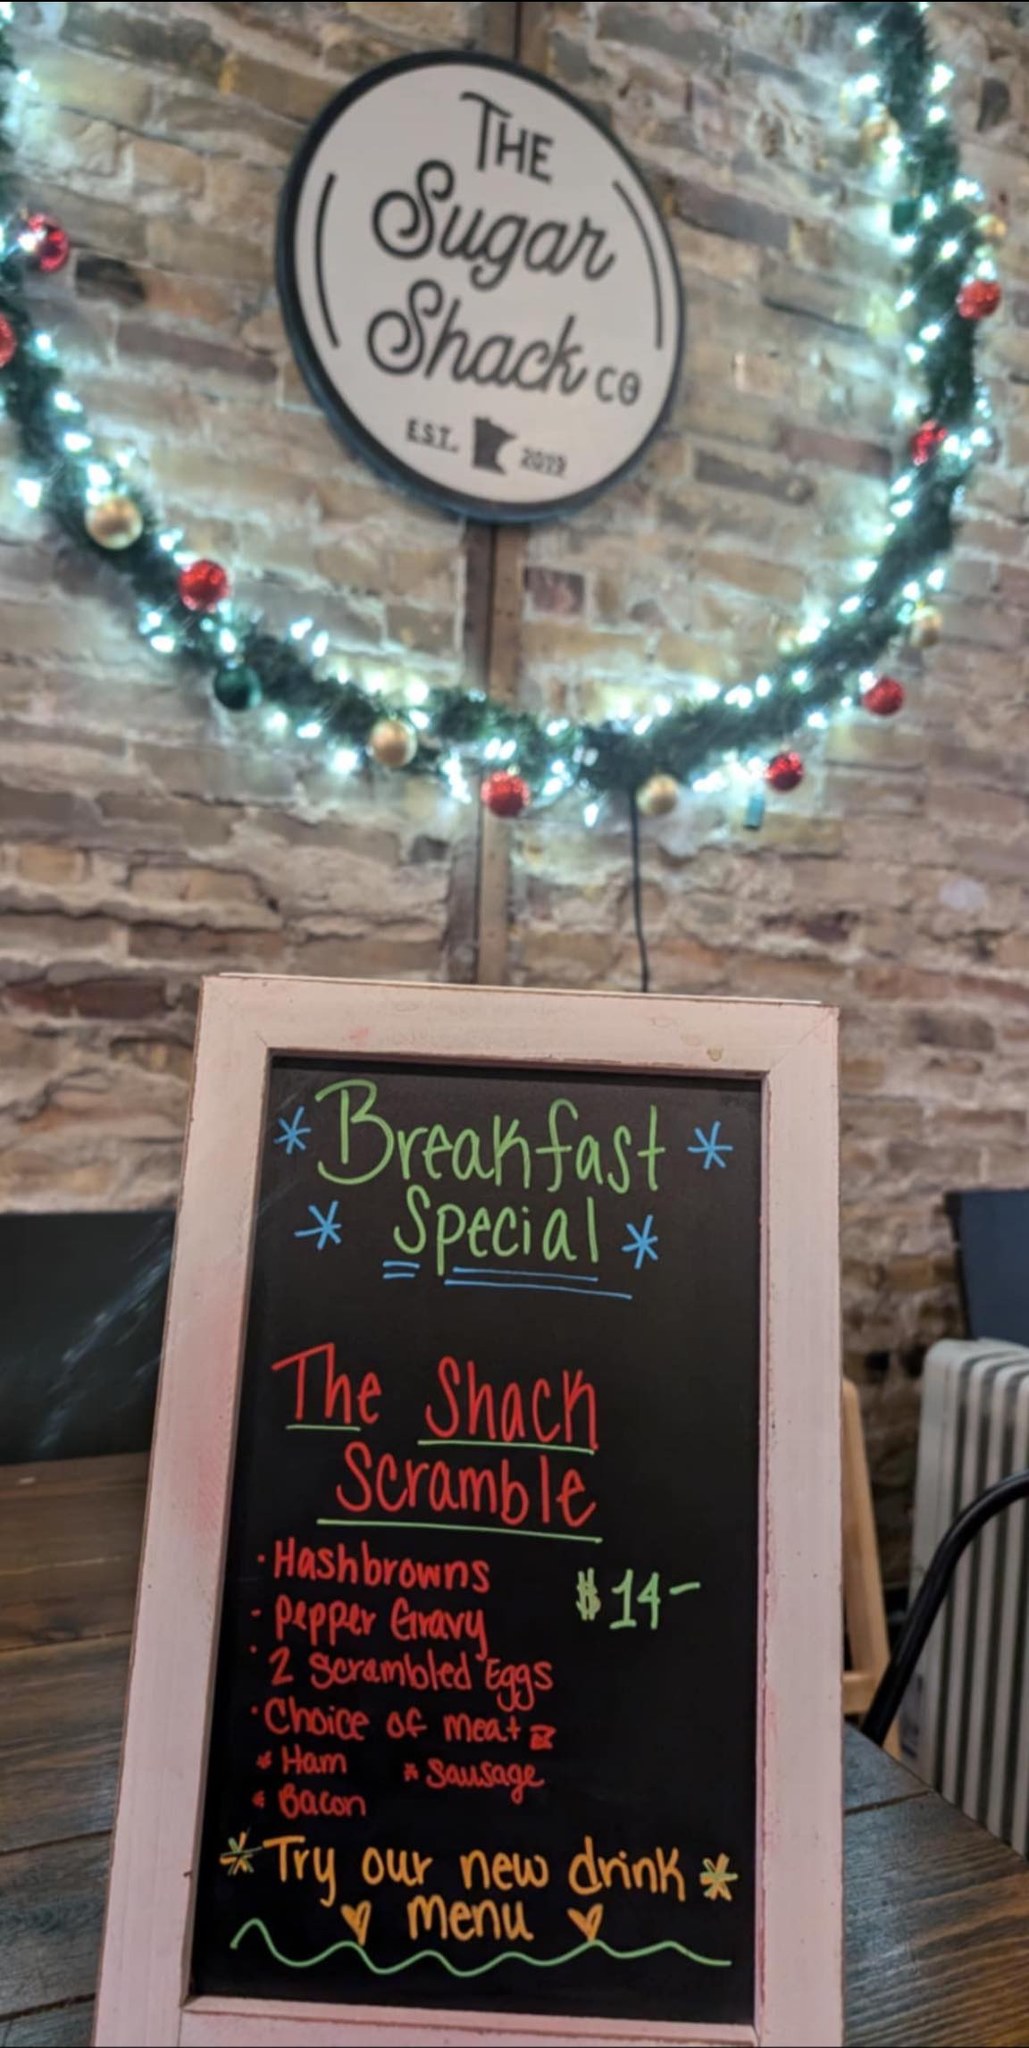 THE
Sugar
Shack CO
EST. 2019
* Breakfast *
* Special *
The Shack
Scramble
· Hashbrowns $14-
- Pepper Gravy
· 2 Scrambled Eggs
· Choice of meat
* Ham * Sausage
* Bacon
* Try our new drink *
menu